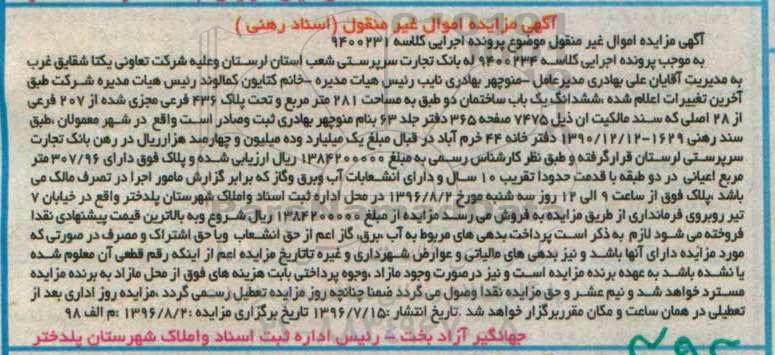 آگهی مزایده اموال غیر منقول (اسناد رهنی)
آگهی مزایده اموال غیر منقول موضوع پرونده اجرایی کلاسه ۹۴۰۰۲۳۱
به موجب پرونده اجرایی کلاسه ۹۴۰۰۲۳۴ له بانک تجارت سرپرستی شعب استان لرستان وعلیه شرکت تعاونی یکتا شقایق غرب
به مدیریت آقایان علی بهادری مدیرعامل -منوچهر بهادری نایب رئیس هیات مدیره -خانم کتایون کمالوند رئیس هیات مدیره شرکت طبق
آخرین تغییرات اعلام شده ،ششدانگ یک باب ساختمان دو طبق به مساحت ۲۸۱ متر مربع و تحت پلاک ۴۳۶ فرعی مجزی شده از ۲۰۷ فرعی
از ۲۸ اصلی که سند مالکیت ان ذیل ۷۴۷۵ صفحه ۳۶۵ دفتر جلد ۶۳ بنام منوچهر بهادری ثبت وصادر است واقع در شهر معمولان ،طبق
سند رهنی ۱۶۲۹-۱۳۹۰/۱۲/۱۲ دفتر خانه ۴۴ خرم آباد در قبال مبلغ یک میلیارد وده میلیون و چهارصد هزارریال در رهن بانک تجارت
سرپرستی لرستان قرارگرفته و طبق نظر کارشناس رسمی به مبلغ ۱۳۸۴۲۰۰۰۰۰ ریال ارزیابی شده و پلاک فوق دارای ۳۰۷/۹۶ متر
مربع اعیانی در دو طبقه با قدمت حدودا تقریب ۱۰ سال و دارای انشعابات آب وبرق وگاز که برابر گزارش مامور اجرا در تصرف مالک می
باشد ،پلاک فوق از ساعت ۹ الی ۱۲ روز سه شنبه مورخ ۱۳۹۶/۸/۲ در محل اداره ثبت اسناد واملاک شهرستان پلدختر واقع در خیابان ۷
تیر روبروی فرمانداری از طریق مزایده به فروش می رسد مزایده از مبلغ ۱۳۸۴۲۰۰۰۰۰ ریال شروع وبه بالاترین قیمت پیشنهادی نقدا
فروخته می شود لازم به ذکر است پرداخت بدهی های مربوط به آب ،برق، گاز اعم از حق انشعاب ویا حق اشتراک و مصرف در صورتی که
مورد مزایده دارای آنها باشد و نیز بدهی های مالیاتی و عوارض شهرداری و غیره تاتاریخ مزایده اعم از اینکه رقم قطعی آن معلوم شده
یا نشده باشد به عهده برنده مزایده است و نیز درصورت وجود مازاد ،وجوه پرداختی بابت هزینه های فوق از محل مازاد به برنده مزایده
مسترد خواهد شد و نیم عشر و حق مزایده نقدا وصول می گردد ضمنا چنانچه روز مزایده تعطیل رسمی گردد ،مزایده روز اداری بعد از
تعطیلی در همان ساعت و مکان مقرربرگزار خواهد شد .تاریخ انتشار :۱۳۹۶/۷/۱۵ تاریخ برگزاری مزایده :۱۳۹۶/۸/۲ :م الف ۹۸
جهانگیر آزاد بخت – رئیس اداره ثبت اسناد واملاک شهرستان پلدختر